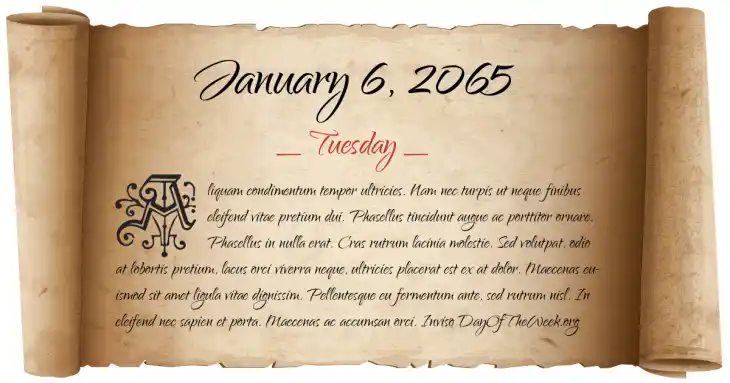 January 6, 2065
_ Tuesday _
Aliquam condimentum tempor ultricies. Nam nec turpis ut neque finibus
eleifend vitae pretium dui. Phasellus tincidunt augue ac porttitor ornare.
Phasellus in nulla erat. Cras rutrum lacinia molestie. Sed volutpat, odio
at lobortis pretium, lacus orci viverra neque, ultricies placerat est ex at dolor. Maecenas eu-
ismod sit amet ligula vitae dignissim. Pellentesque eu fermentum ante, sed rutrum nisl. In
eleifend nec sapien et porta. Maecenas ac accumsan orci. Inviso DayOfTheWeek.org